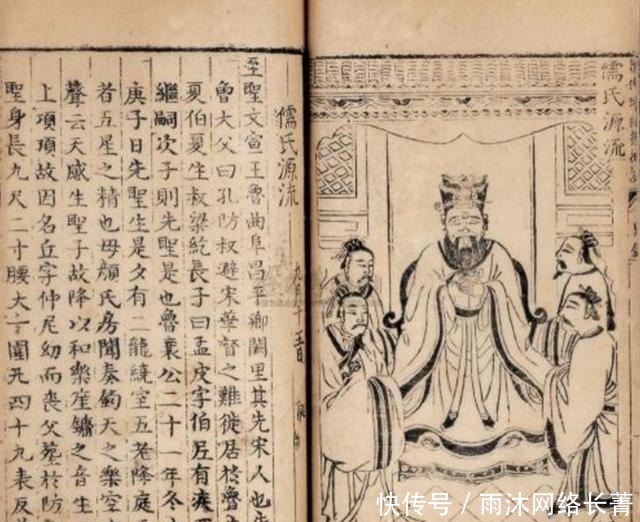 儒氏源流
儒氏源流
至聖文宣王魯曲阜昌平鄉闕里其先宋人也
魯大父曰孔防叔避宋華督之難徙居於魯
夏伯夏生叔梁紇長子曰孟皮字伯尼有疾
繼嗣次子則先聖是也魯襄公二十一年冬
庚子日先聖生是夕有二龍繞室五老降庭
者五星之精也母顏氏房聞奏鈞天之樂空
聲云天感生聖子故降以和樂座鏞之音生
上項頂故因名丘字仲尼幼而喪父葬於防
聖身長九尺二寸腰大十圍凡四十九表反
快传号/雨沐网络长菁